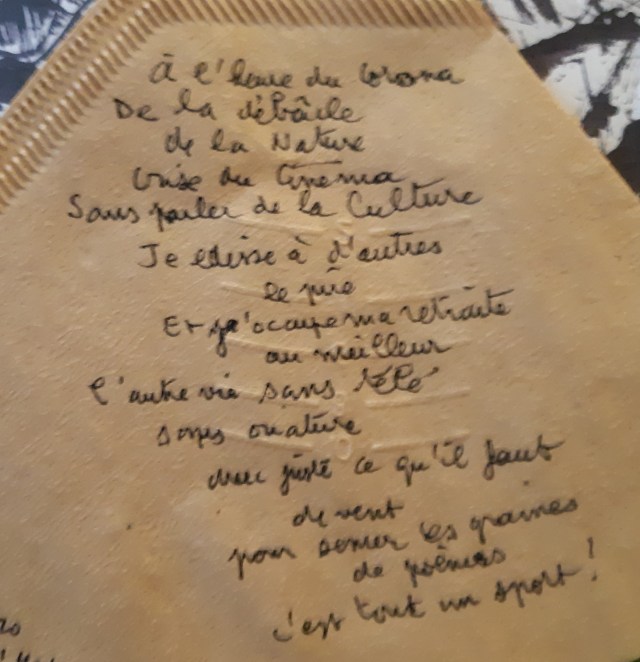 À l'heure du Corona
De la débâcle
de la Nature
Crise du Cinema
Sans parler de la Culture
Je laisse à d'autres
le pire
Et j'occupe ma retraite
au meilleur
l'autre vie sans télé
sans
avec juste ce qu'il faut
de vent
pour semer les graines
de poèmes
c'est tout un sport!
20